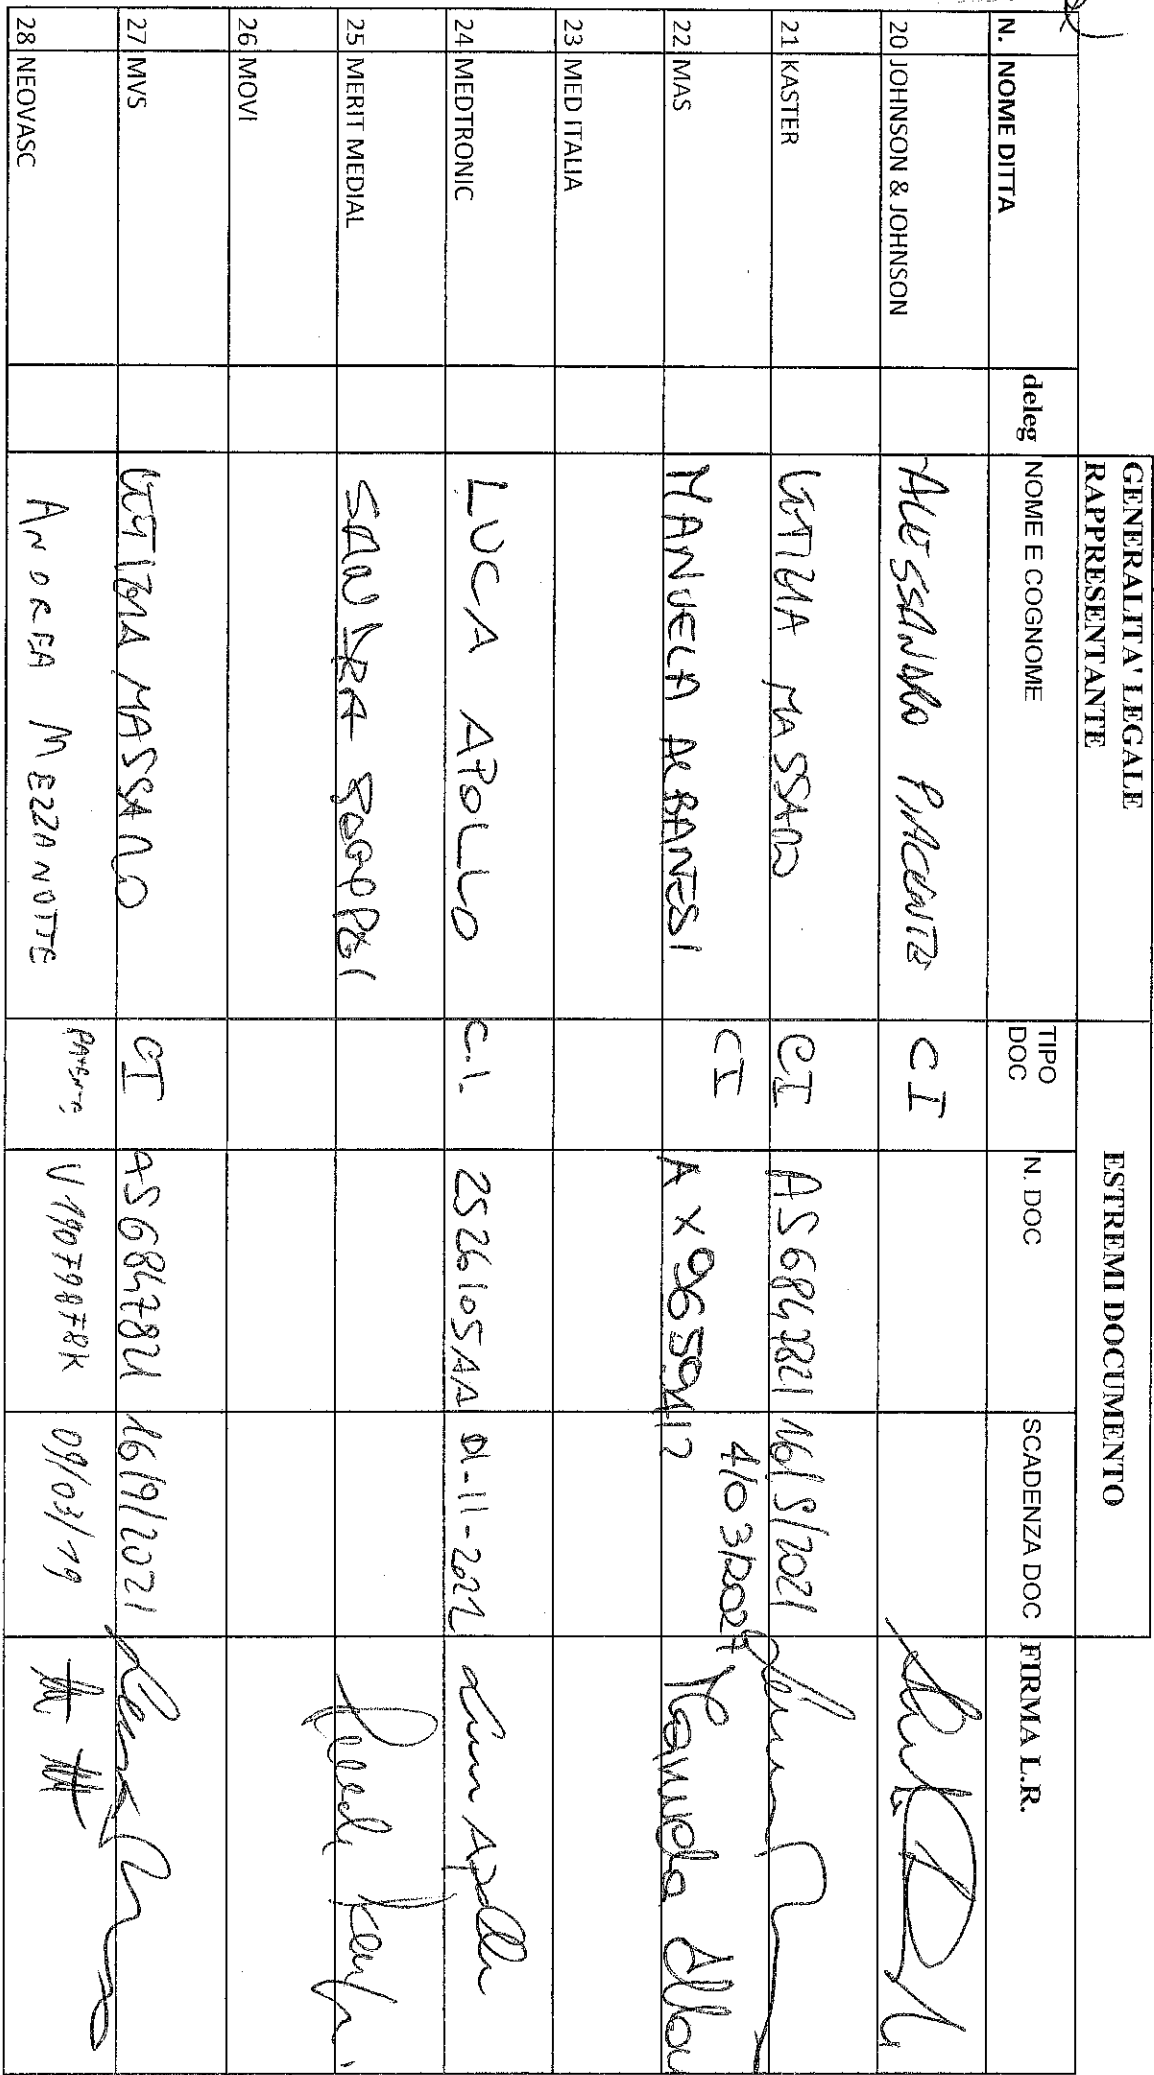 GENERALITA' LEGALE RAPPRESENTANTE ESTREMI DOCUMENTO
N. NOME DITTA deleg NOME E COGNOME TIPO DOC N. DOC SCADENZA DOC FIRMA L.R.
20 JOHNSON & JOHNSON ALESSANDRO PIACENTE CI
21 KASTER MASSANO CI AS6847821
22 MAS MANUELA ALBANESI CI 4/03/2027 Manuela
23 MED ITALIA
24 MEDTRONIC LUCA APOLLO C.I. 2526105AA Luca Apollo
25 MERIT MEDIAL SANDRA
26 MOVI
27 MVS MASSANO CI AS6847821 16/9/2021
28 NEOVASC ANDREA MEZZANOTTE PATENTE 09/03/19